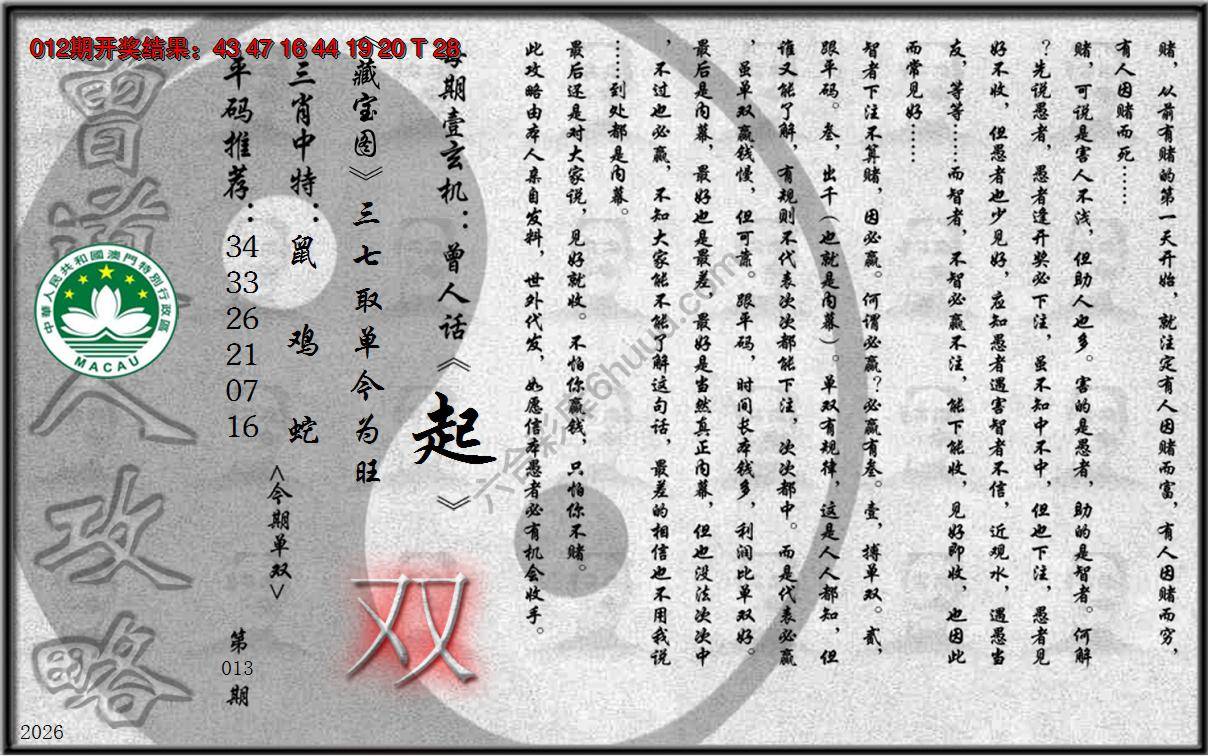 012期开奖结果：43 47 16 44 19 20 T 28
赌，从前有赌的第一天开始，就注定有人因赌而富，有人因赌而穷，
有人因赌而死……
赌，可说是害人不浅，但助人也多。害的是愚者，助的是智者。何解
？先说愚者，愚者逢开奖必下注，虽不知中不中，但也下注，愚者见
好不收，但愚者也少见好，应知愚者遇害智者不信，近观水，遇愚当
友，等等……而智者，不智必赢不注，能下能收，见好即收，也因此
而常见好……
智者下注不算赌，因必赢。何谓必赢？必赢有叁。壹，搏单双。贰，
跟平码。叁，出千（也就是内幕）。单双有规律，这是人人都知，但
谁又能了解，有规则不代表次次都能下注，次次都中。而是代表必赢
，虽单双赢钱慢，但可靠。跟平码，时间长本钱多，利润比单双好。
最后是内幕，最好也是最差，最好是当然真正内幕，但也没法次次中
，不过也必赢，不知大家能不能了解这句话，最差的相信也不用我说
……到处都是内幕。
最后还是对大家说，见好就收。不怕你赢钱，只怕你不赌。
此攻略由本人亲自发料，世外代发，如愿信本愚者必有机会收手。
每期壹玄机：曾人话《起》
《藏宝图》三七取单今为旺
双
三肖中特：鼠 鸡 蛇
<今期单双>
平码推荐：
34
33
26
21
07
16
第
013
期
曾道人攻略
中華人民共和國澳門特別行政區
MACAU
六合彩库6huuu.com
2026